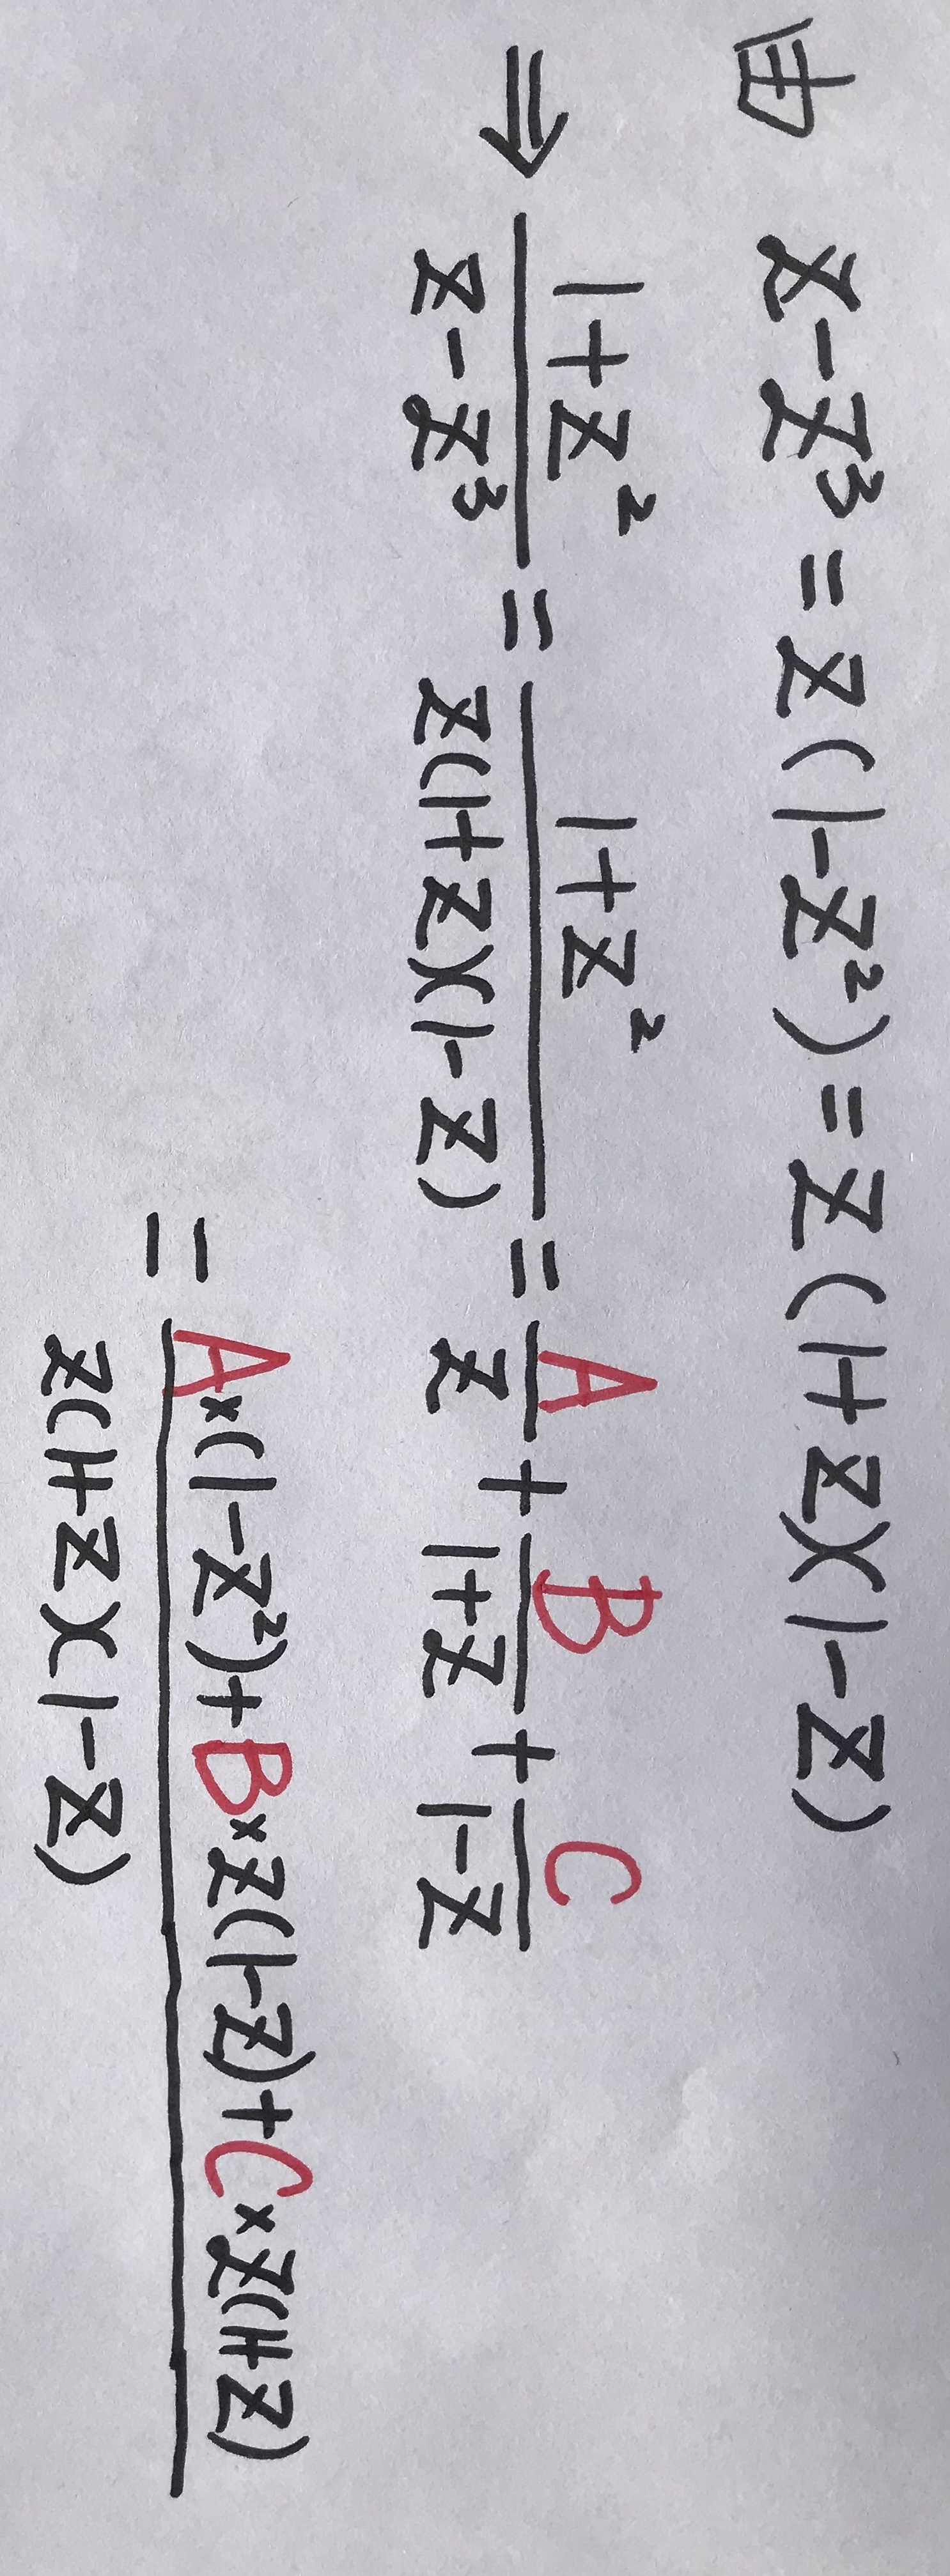 由 z-z³=z(1-z²)=z(1+z)(1-z)
⇒ \frac{1+z²}{z-z³}=\frac{1+z²}{z(1+z)(1-z)}=\frac{A}{z}+\frac{B}{1+z}+\frac{C}{1-z}
=\frac{A×(1-z²)+B×z(1-z)+C×z(1+z)}{z(1+z)(1-z)}